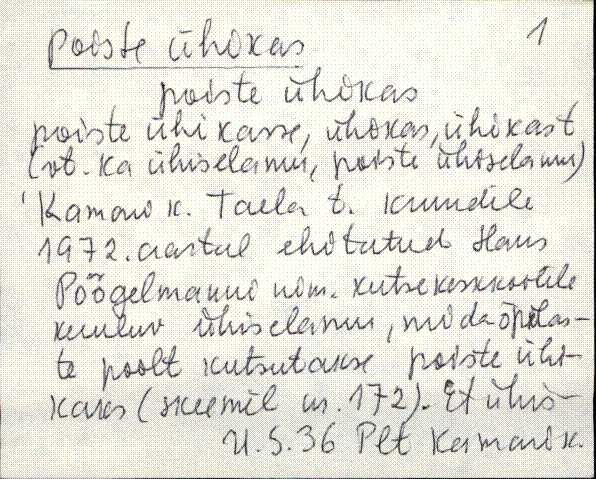 1
Poiste ühikas
poiste ühikas
poiste ühikasse, ühikas, ühikast
(vt. ka ühiselamu, poiste ühiselamu)
Kamari k. Taela t. krundile
1972. aastal ehitatud Hans
Pöögelmanni nim. kutsekeskkoolile
kuuluv ühiselamu, mida õpilas-
te poolt kutsutakse poiste ühi-
kaks (skeemil nr. 172). Et ühis-
U.S.36 Plt Kamari k.